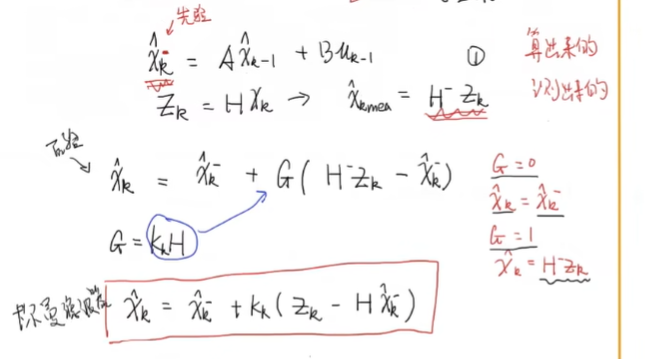 先验
x̂ₖ⁻ = Ax̂ₖ₋₁ + Buₖ₋₁ ① 算出来的
Zₖ = Hxₖ → x̂ₖmea = H⁻Zₖ 测出来的
后验
x̂ₖ = x̂ₖ⁻ + G(H⁻Zₖ - x̂ₖ⁻)
G=0
x̂ₖ = x̂ₖ⁻
G = KₖH
G=1
x̂ₖ = H⁻Zₖ
x̂ₖ = x̂ₖ⁻ + Kₖ(Zₖ - Hx̂ₖ⁻)